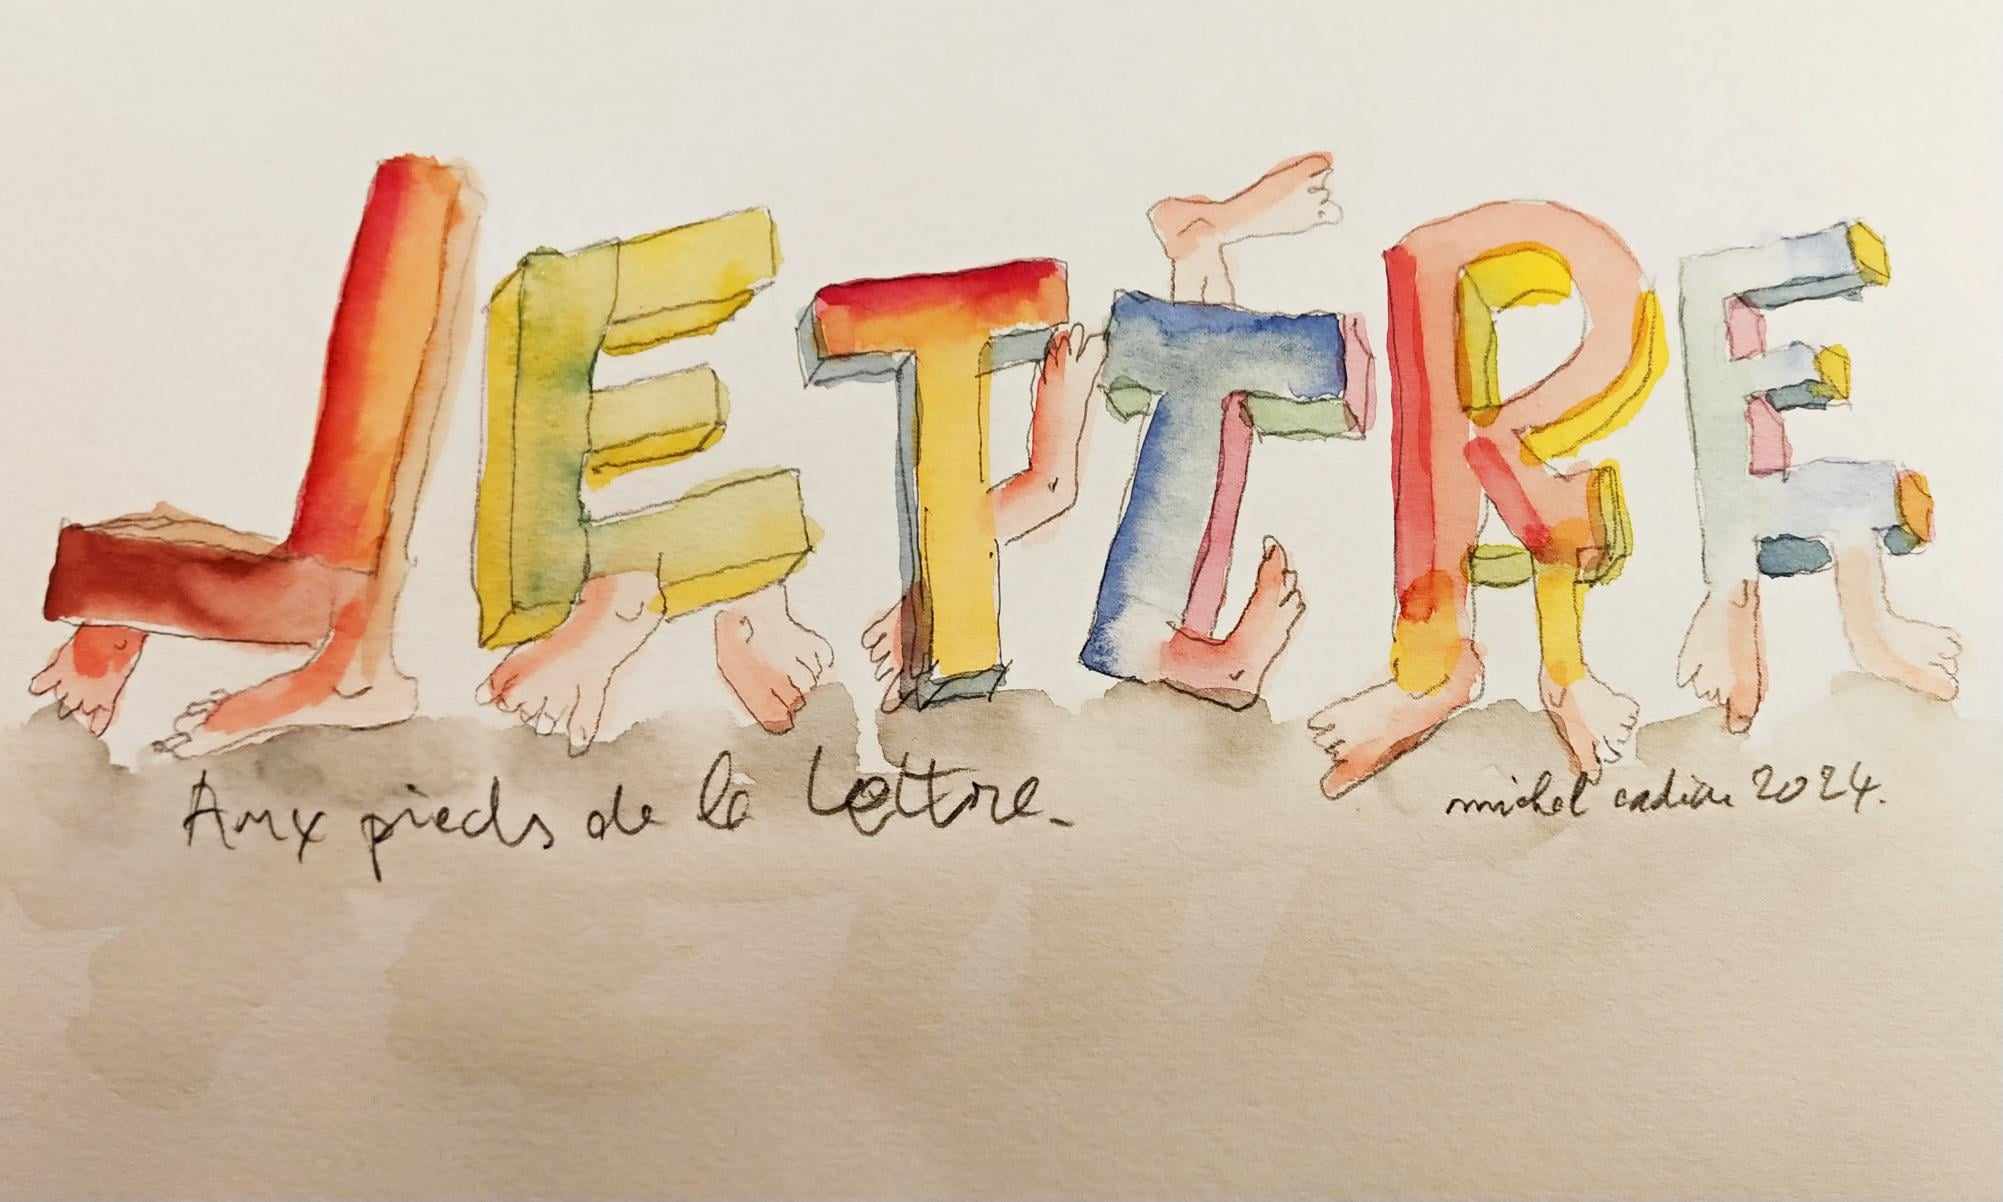 JETTRE
Aux pieds de la Lettre.
michel cadiou 2024.